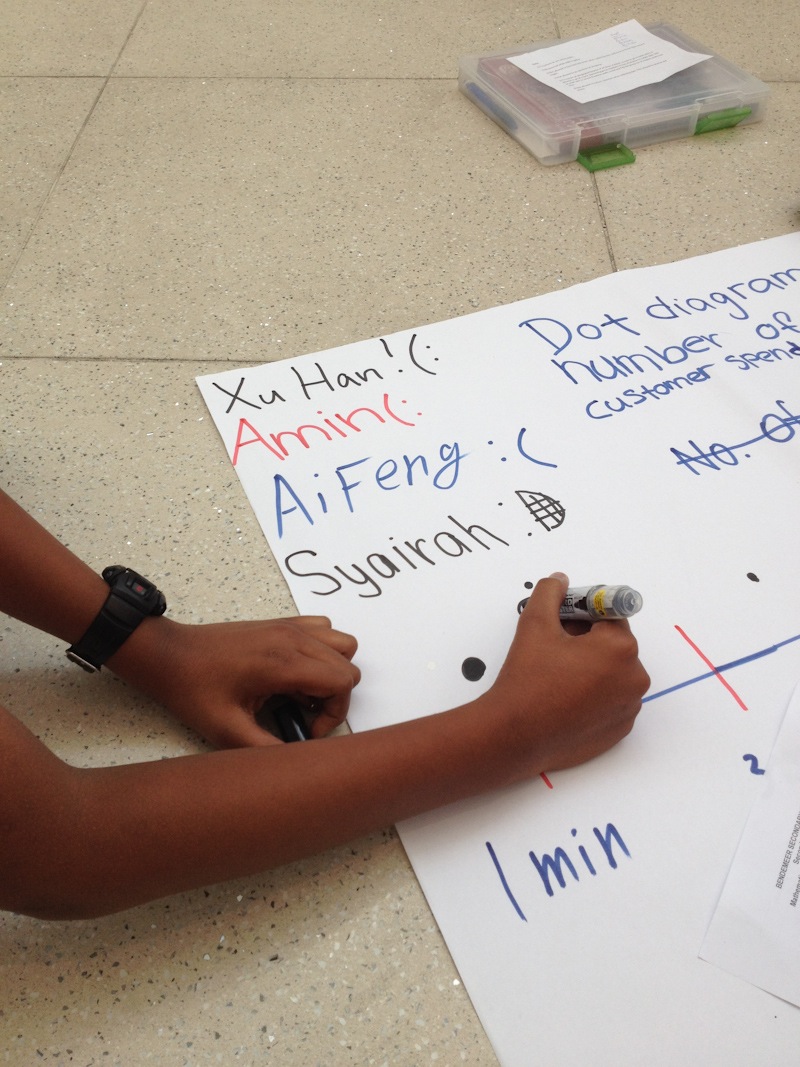 Xu Han!(:
Amin(:
AiFeng :(
Syairah :
Dot diagram
number of
customer spend
No. Of
2
1 min
BENDEMEER SECONDARY